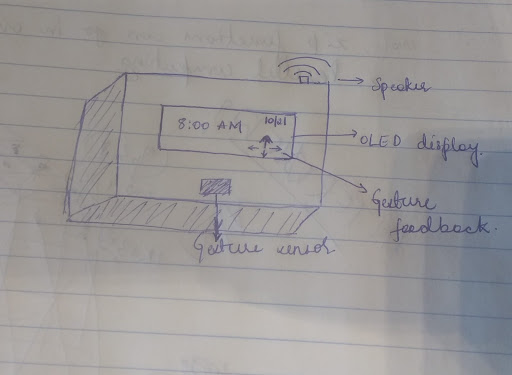 Speaker
8:00 AM
10/21
OLED display.
Gesture
feedback.
Gesture sensor